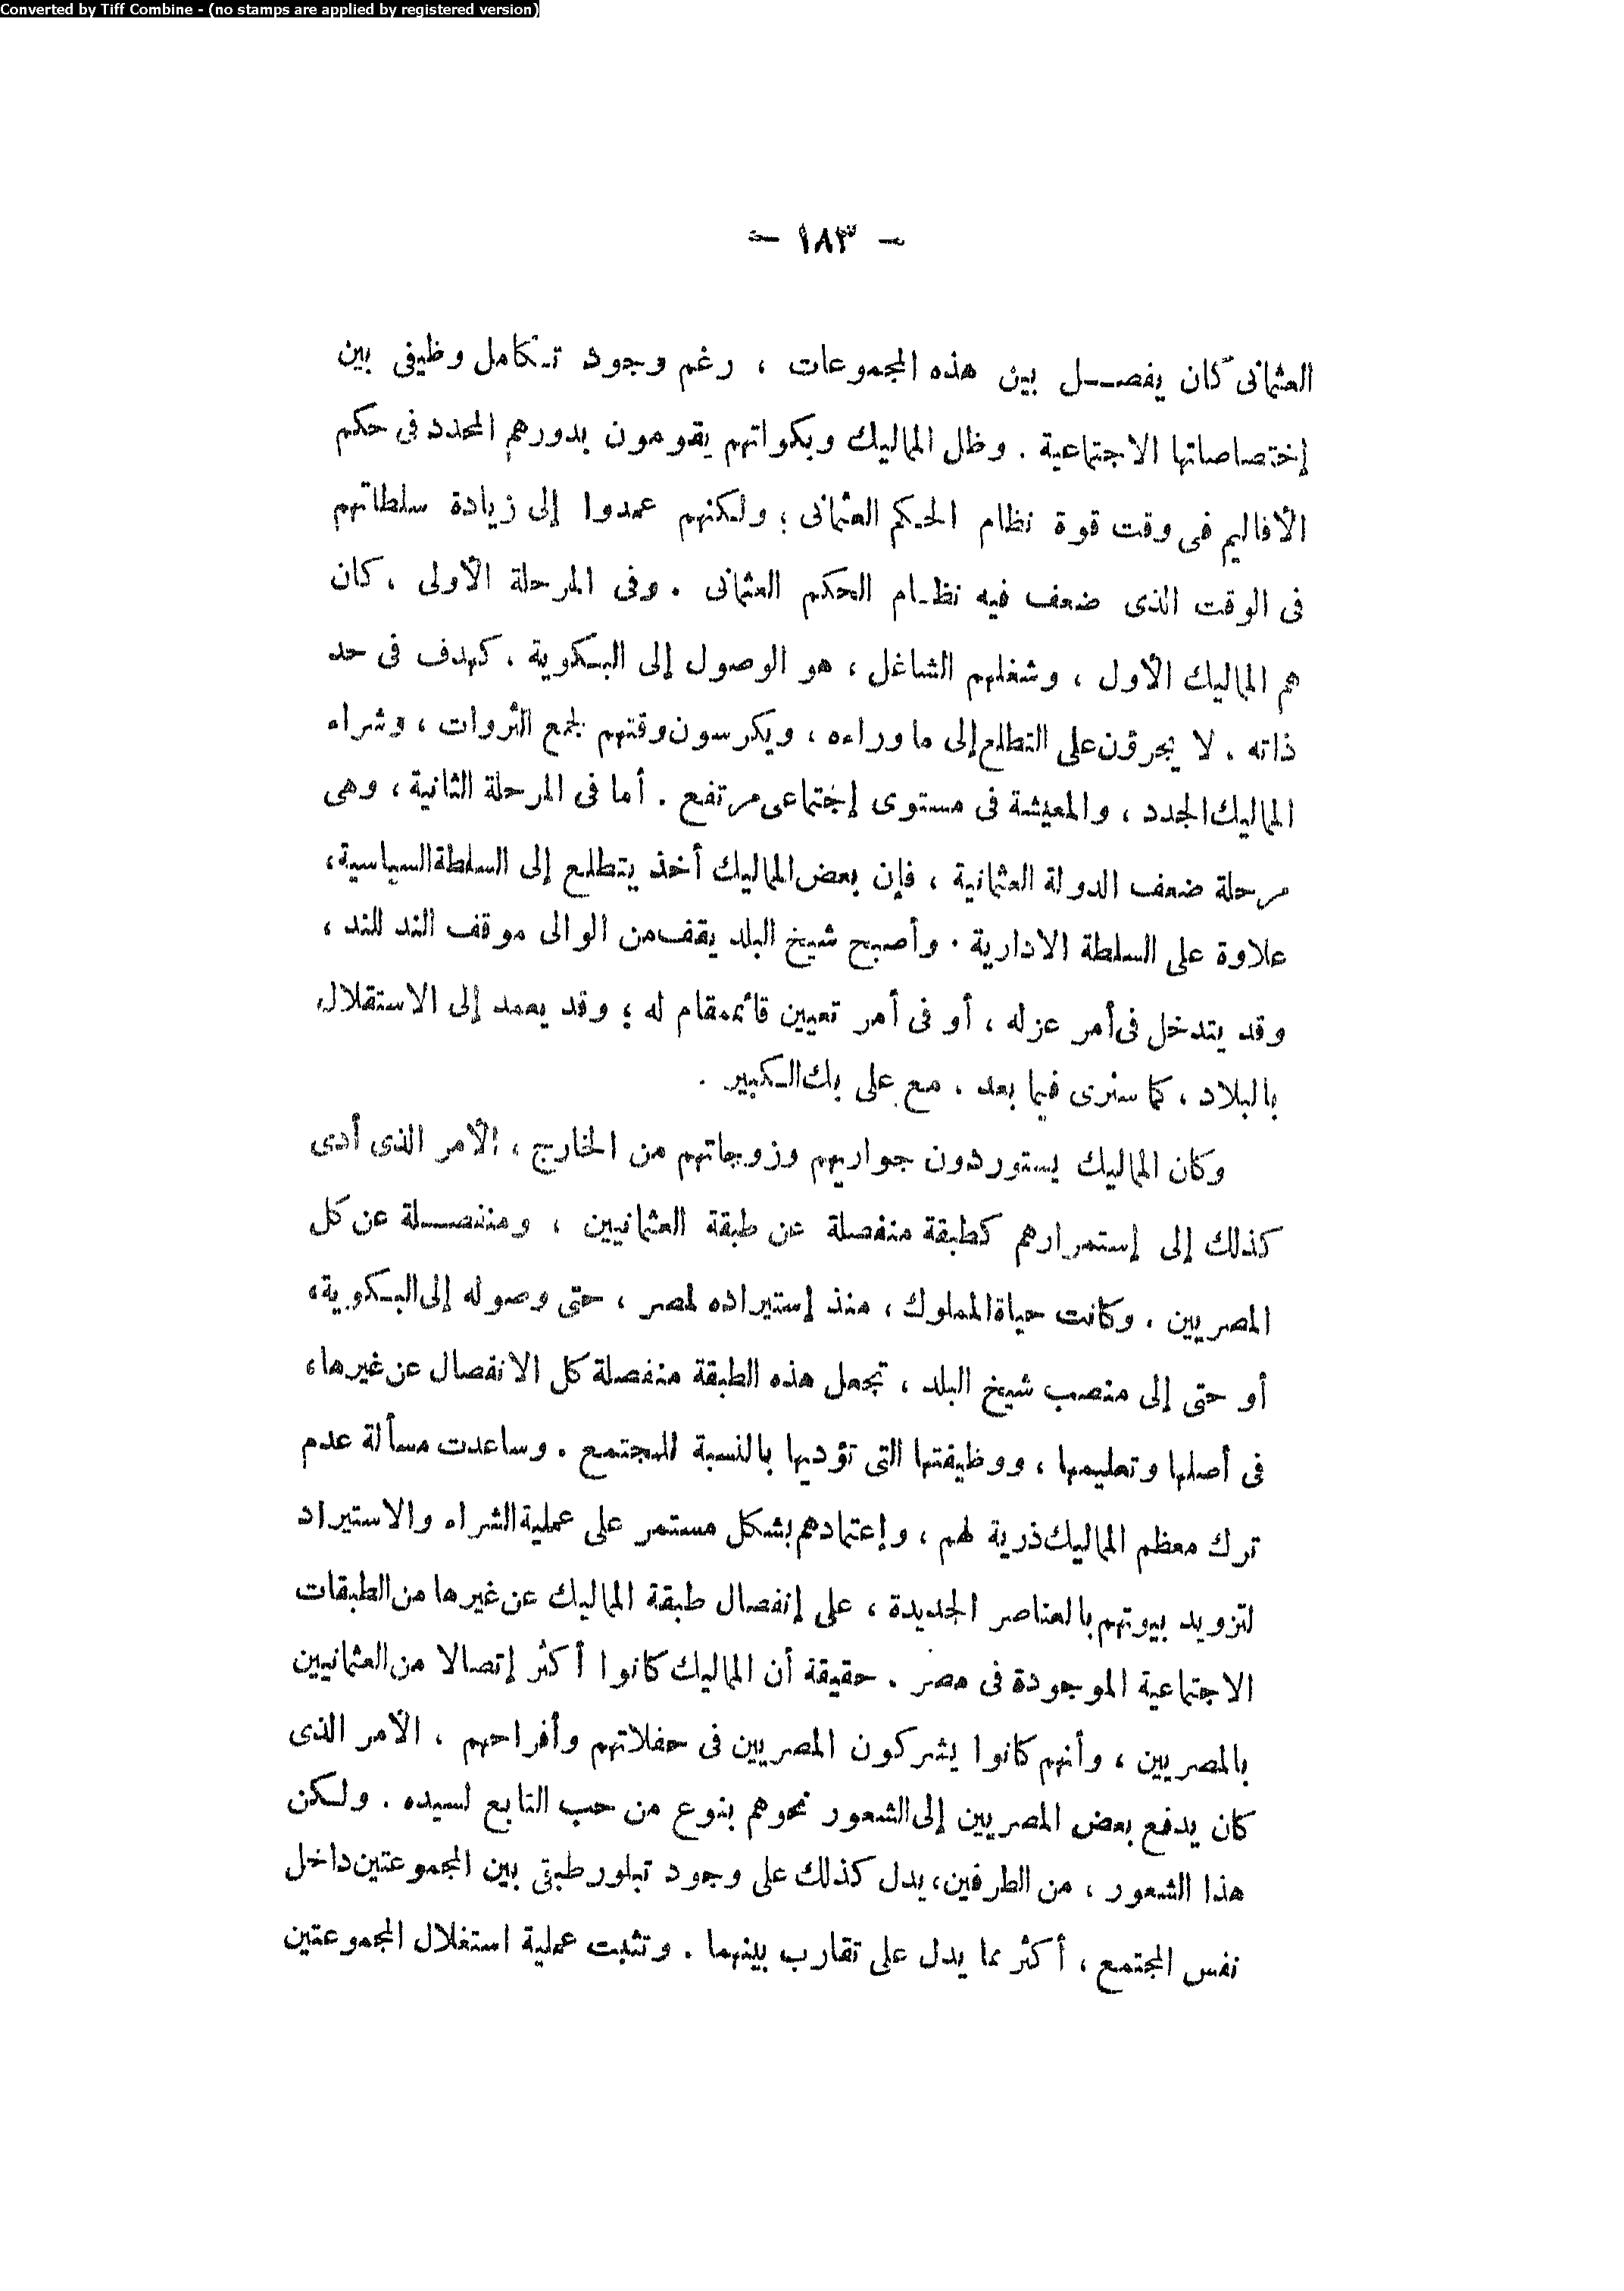 Converted by Tiff Combine - (no stamps are applied by registered version)
- ١٨٣ -
العثمانى كان يفصل بين هذه المجموعات ، رغم وجود تكامل وظيفى بين
إختصاصاتها الاجتماعية . وظل المماليك وبكواتهم يقومون بدورهم المحدد فى حكم
الأقاليم فى وقت قوة نظام الحكم العثمانى ؛ ولكنهم عمدوا إلى زيادة سلطاتهم
فى الوقت الذى ضعف فيه نظام الحكم العثمانى . وفى المرحلة الأولى ، كان
هم المماليك الأول ، وشغلهم الشاغل ، هو الوصول إلى البكوية ، كهدف فى حد
ذاته ، لا يجرؤن على التطلع إلى ما وراءه ، ويكرسون وقتهم لجمع الثروات ، وشراء
المماليك الجدد ، والمعيشة فى مستوى إجتماعى مرتفع . أما فى المرحلة الثانية ، وهى
مرحلة ضعف الدولة العثمانية ، فإن بعض المماليك أخذ يتطلع إلى السلطة السياسية ،
علاوة على السلطة الادارية . وأصبح شيخ البلد يقف من الوالى موقف الند للند ،
وقد يتدخل فى أمر عزله ، أو فى أمر تعيين قائممقام له ؛ وقد يعمد إلى الاستقلال
بالبلاد ، كما سنرى فيما بعد ، مع على بك الكبير .
وكان المماليك يستوردون جواريهم وزوجاتهم من الخارج ، الأمر الذى أدى
كذلك إلى إستمرارهم كطبقة منفصلة عن طبقة العثمانيين ، ومنفصلة عن كل
المصريين . وكانت حياة المملوك ، منذ إستيراده لمصر ، حتى وصوله إلى البكوية ،
أو حتى إلى منصب شيخ البلد ، تجعل هذه الطبقة منفصلة كل الانفصال عن غيرها ،
فى أصلها وتعليمها ، ووظيفتها التى تؤديها بالنسبة للمجتمع . وساعدت مسألة عدم
ترك معظم المماليك ذرية لهم ، وإعتمادهم بشكل مستمر على عملية الشراء والاستيراد
لتزويد بيوتهم بالعناصر الجديدة ، على إنفصال طبقة المماليك عن غيرها من الطبقات
الاجتماعية الموجودة فى مصر . حقيقة أن المماليك كانوا أكثر إتصالا من العثمانيين
بالمصريين ، وأنهم كانوا يشركون المصريين فى حفلاتهم وأفراحهم ، الأمر الذى
كان يدفع بعض المصريين إلى الشعور نحوهم بنوع من حب التابع لسيده . ولكن
هذا الشعور ، من الطرفين ، يدل كذلك على وجود تبلور طبقى بين المجموعتين داخل
نفس المجتمع ، أكثر مما يدل على تقارب بينهما . وتثبت عملية استغلال المجموعتين